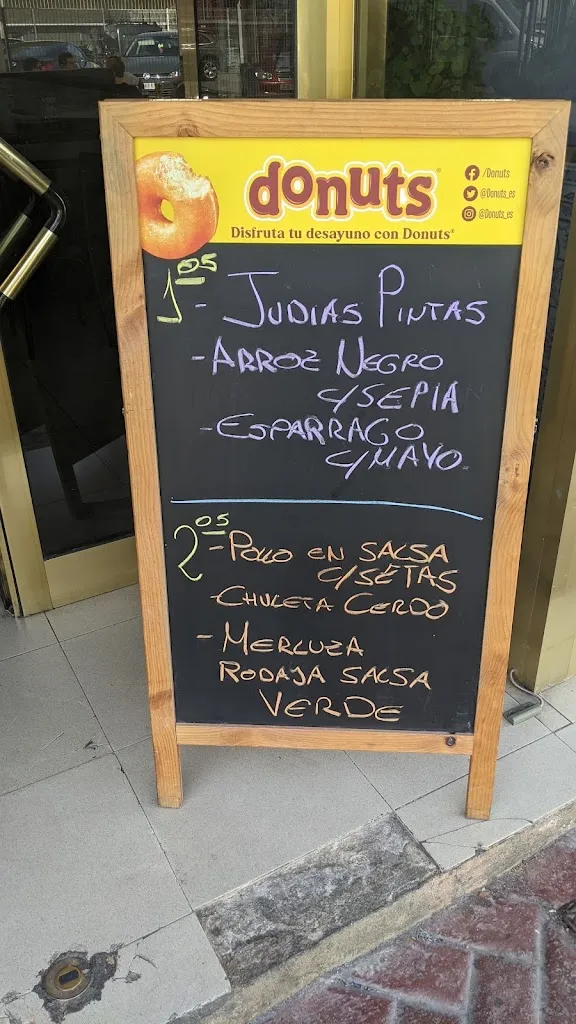 donuts
Disfruta tu desayuno con Donuts®
/Donuts
@Donuts_es
@Donuts_es
1os - JUDIAS PINTAS
- ARROZ NEGRO
C/SEPIA
- ESPARRAGO
C/MAYO
2os - POLLO EN SALSA
C/SETAS
- CHULETA CERDO
- MERLUZA
RODAJA SALSA
VERDE